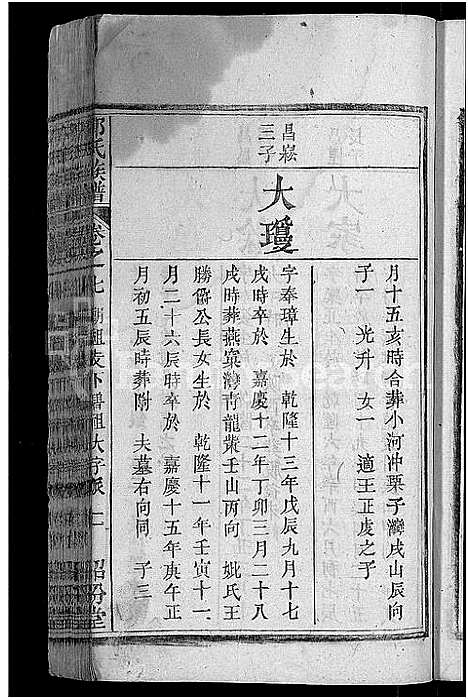 月十五亥時合葬小河沖栗子灣戌山辰向
子一 光升 女一 適王正虔之子
昌崧
三子
大璦
字奉璋生於 乾隆十三年戊辰九月十七
戌時卒於 嘉慶十二年丁卯三月二十八
戌時葬燕窠灣青龍嘴壬山丙向 妣氏王
勝爵公長女生於 乾隆十一年壬寅十一
月二十六辰時卒於 嘉慶十五年庚午正
月初五辰時葬附 夫墓右向同 子三
氏族譜
卷之七